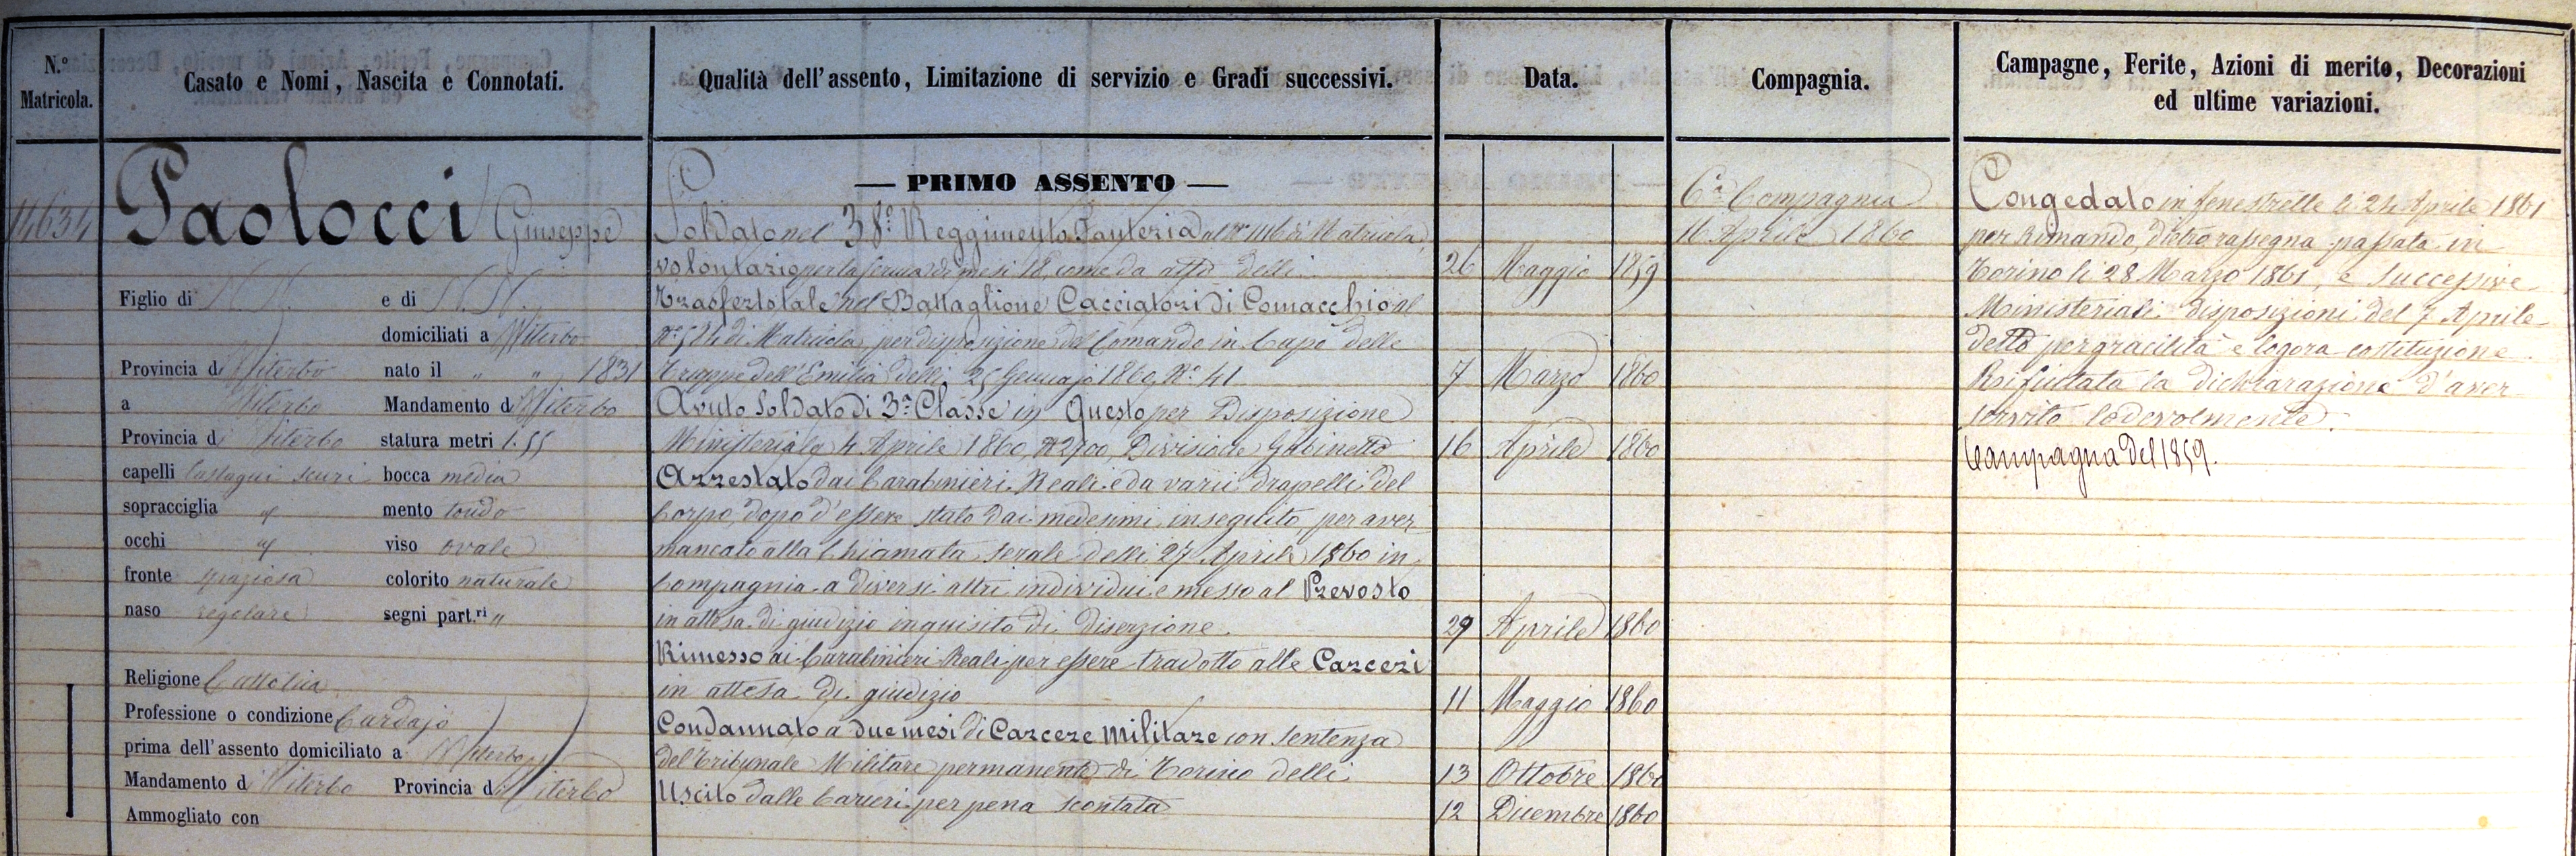 N.º Matricola.
Casato e Nomi, Nascita e Connotati.
Qualità dell'assento, Limitazione di servizio e Gradi successivi.
Data.
Compagnia.
Campagne, Ferite, Azioni di merito, Decorazioni
ed ultime variazioni.
14634
Paolocci Giuseppe
Figlio di N. N. e di N. N.
domiciliati a Viterbo
Provincia di Viterbo nato il " " 1831
a Viterbo Mandamento di Viterbo
Provincia di Viterbo statura metri 1.55
capelli Castagni scuri bocca media
sopracciglia " mento tondo
occhi " viso ovale
fronte spaziosa colorito naturale
naso regolare segni part.ri "
Religione Cattolica
Professione o condizione Cardajo
prima dell'assento domiciliato a Viterbo
Mandamento di Viterbo Provincia di Viterbo
Ammogliato con
— PRIMO ASSENTO —
Soldato nel 38º Reggimento Fanteria al Nº di Matricola,
volontario per la ferma di mesi 18, come da atto delli 26 Maggio 1859
Trasferto tale nel Battaglione Cacciatori di Comacchio al
Nº 524 di Matricola, per disposizione del Comando in Capo delle
Truppe dell'Emilia delli 25 Gennajo 1860, Nº 41 7 Marzo 1860
Avuto Soldato di 3ª Classe in Questo per Disposizione
Ministeriale 4 Aprile 1860, Nº 2900, Divisione Gabinetto 16 Aprile 1860
Arrestato dai Carabinieri Reali e da varii drapelli del
Corpo, dopo d'essere stato dai medesimi inseguito, per aver
mancato alla Chiamata serale delli 27 Aprile 1860 in
Compagnia a diversi altri individui e messo al Prevosto
in attesa di giudizio inquisito di diserzione. 29 Aprile 1860
Rimesso ai Carabinieri Reali per essere tradotto alle Carceri
in attesa di giudizio 11 Maggio 1860
Condannato a due mesi di Carcere Militare con sentenza
del Tribunale Militare permanente di Torino delli 13 Ottobre 1860
Uscito dalle Carceri per pena scontata 12 Dicembre 1860
6ª Compagnia
16 Aprile 1860
Congedato in fenestrelle li 24 Aprile 1861
per Rimando, dietro rassegna passata in
Torino li 28 Marzo 1861, e successive
Ministeriali disposizioni del 7 Aprile
detto per gracilità e logora costituzione.
Rifiutata la dichiarazione d'aver
servito lodevolmente.
Campagna del 1859.